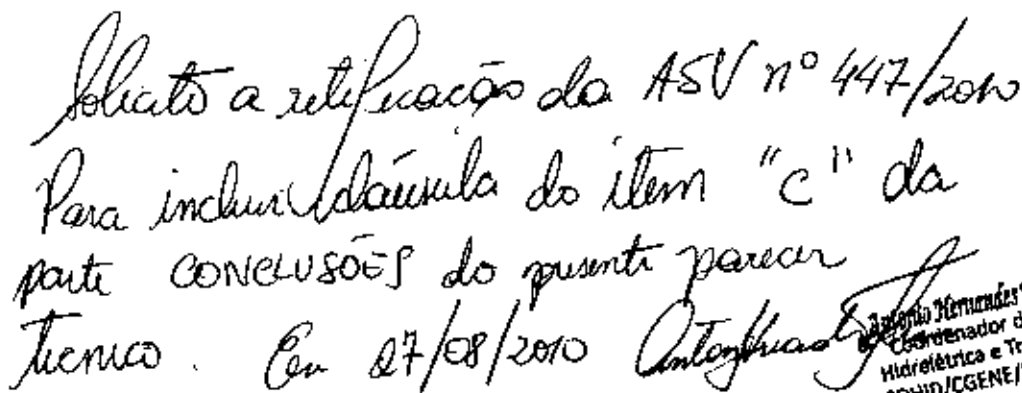 Solicito a retificação da ASV nº 447/2010
Para incluir cláusula do item "c" da
parte CONCLUSÕES do presente parecer
Técnico. Em 27/08/2010
Antonio Hernandes
Coordenador d
Hidrelétrica e Tr
COHID/CGENE/